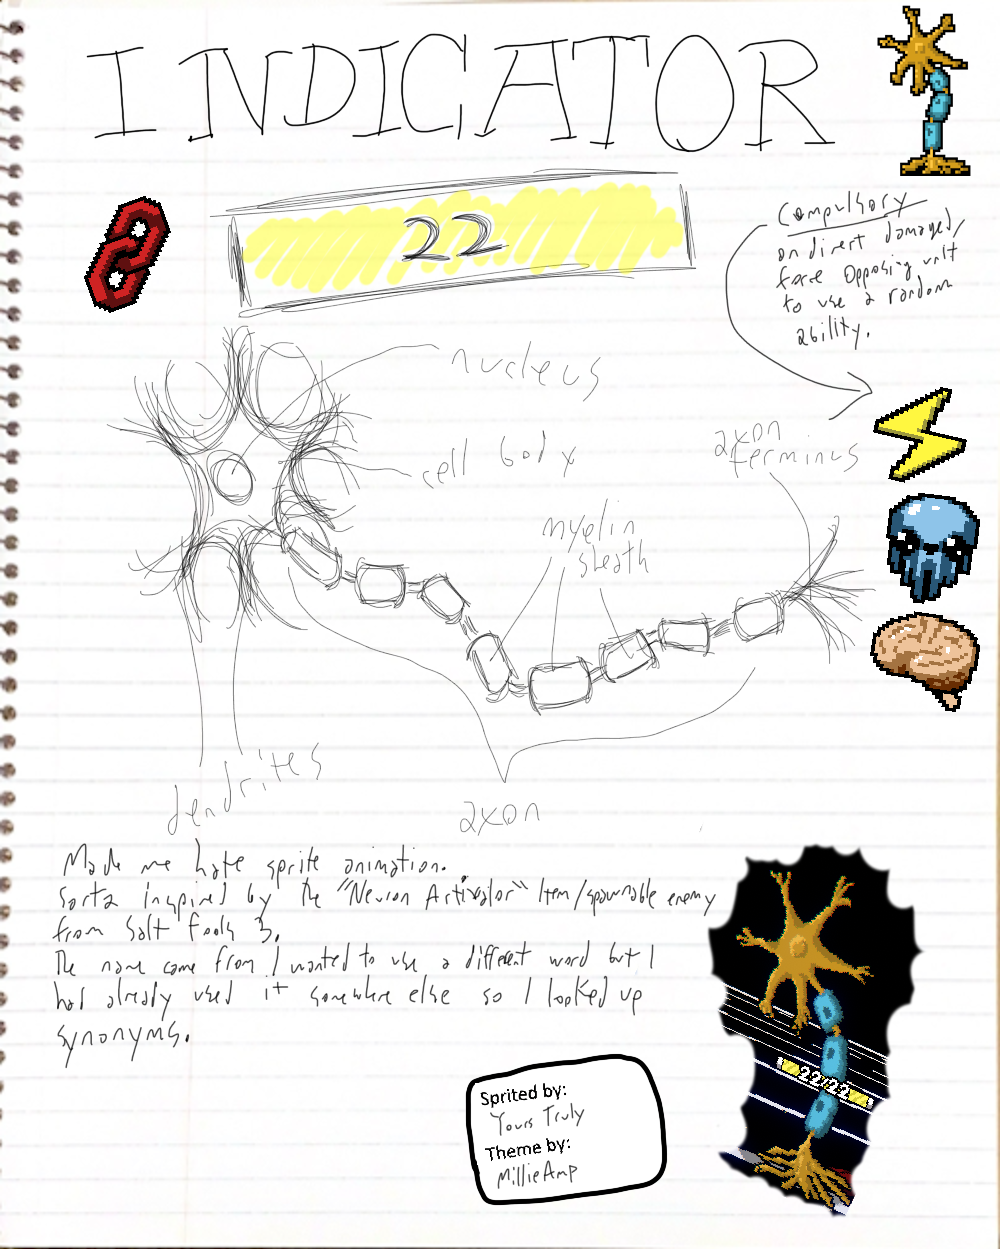 INDICATOR
22
Compulsory
on direct damaged,
force opposing unit
to use a random
ability.
nucleus
cell body
axon
terminus
myelin
sheath
dendrites
axon
Made me hate sprite animation.
Sorta inspired by the "Neuron Activator" Item/spawnable enemy
from Salt Fools 3.
The name came from I wanted to use a different word but I
had already used it somewhere else so I looked up
synonyms.
22/22
Sprited by:
Yours Truly
Theme by:
MillieAmp